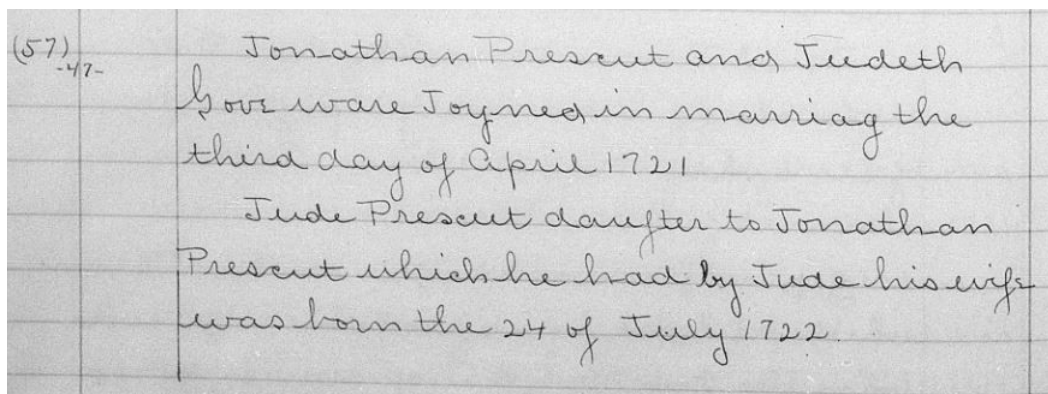 (57) Jonathan Prescut and Judeth
-47-
Gove ware Joyned in marriag the
third day of April 1721
Jude Prescut daufter to Jonathan
Prescut which he had by Jude his wife
was born the 24 of July 1722.